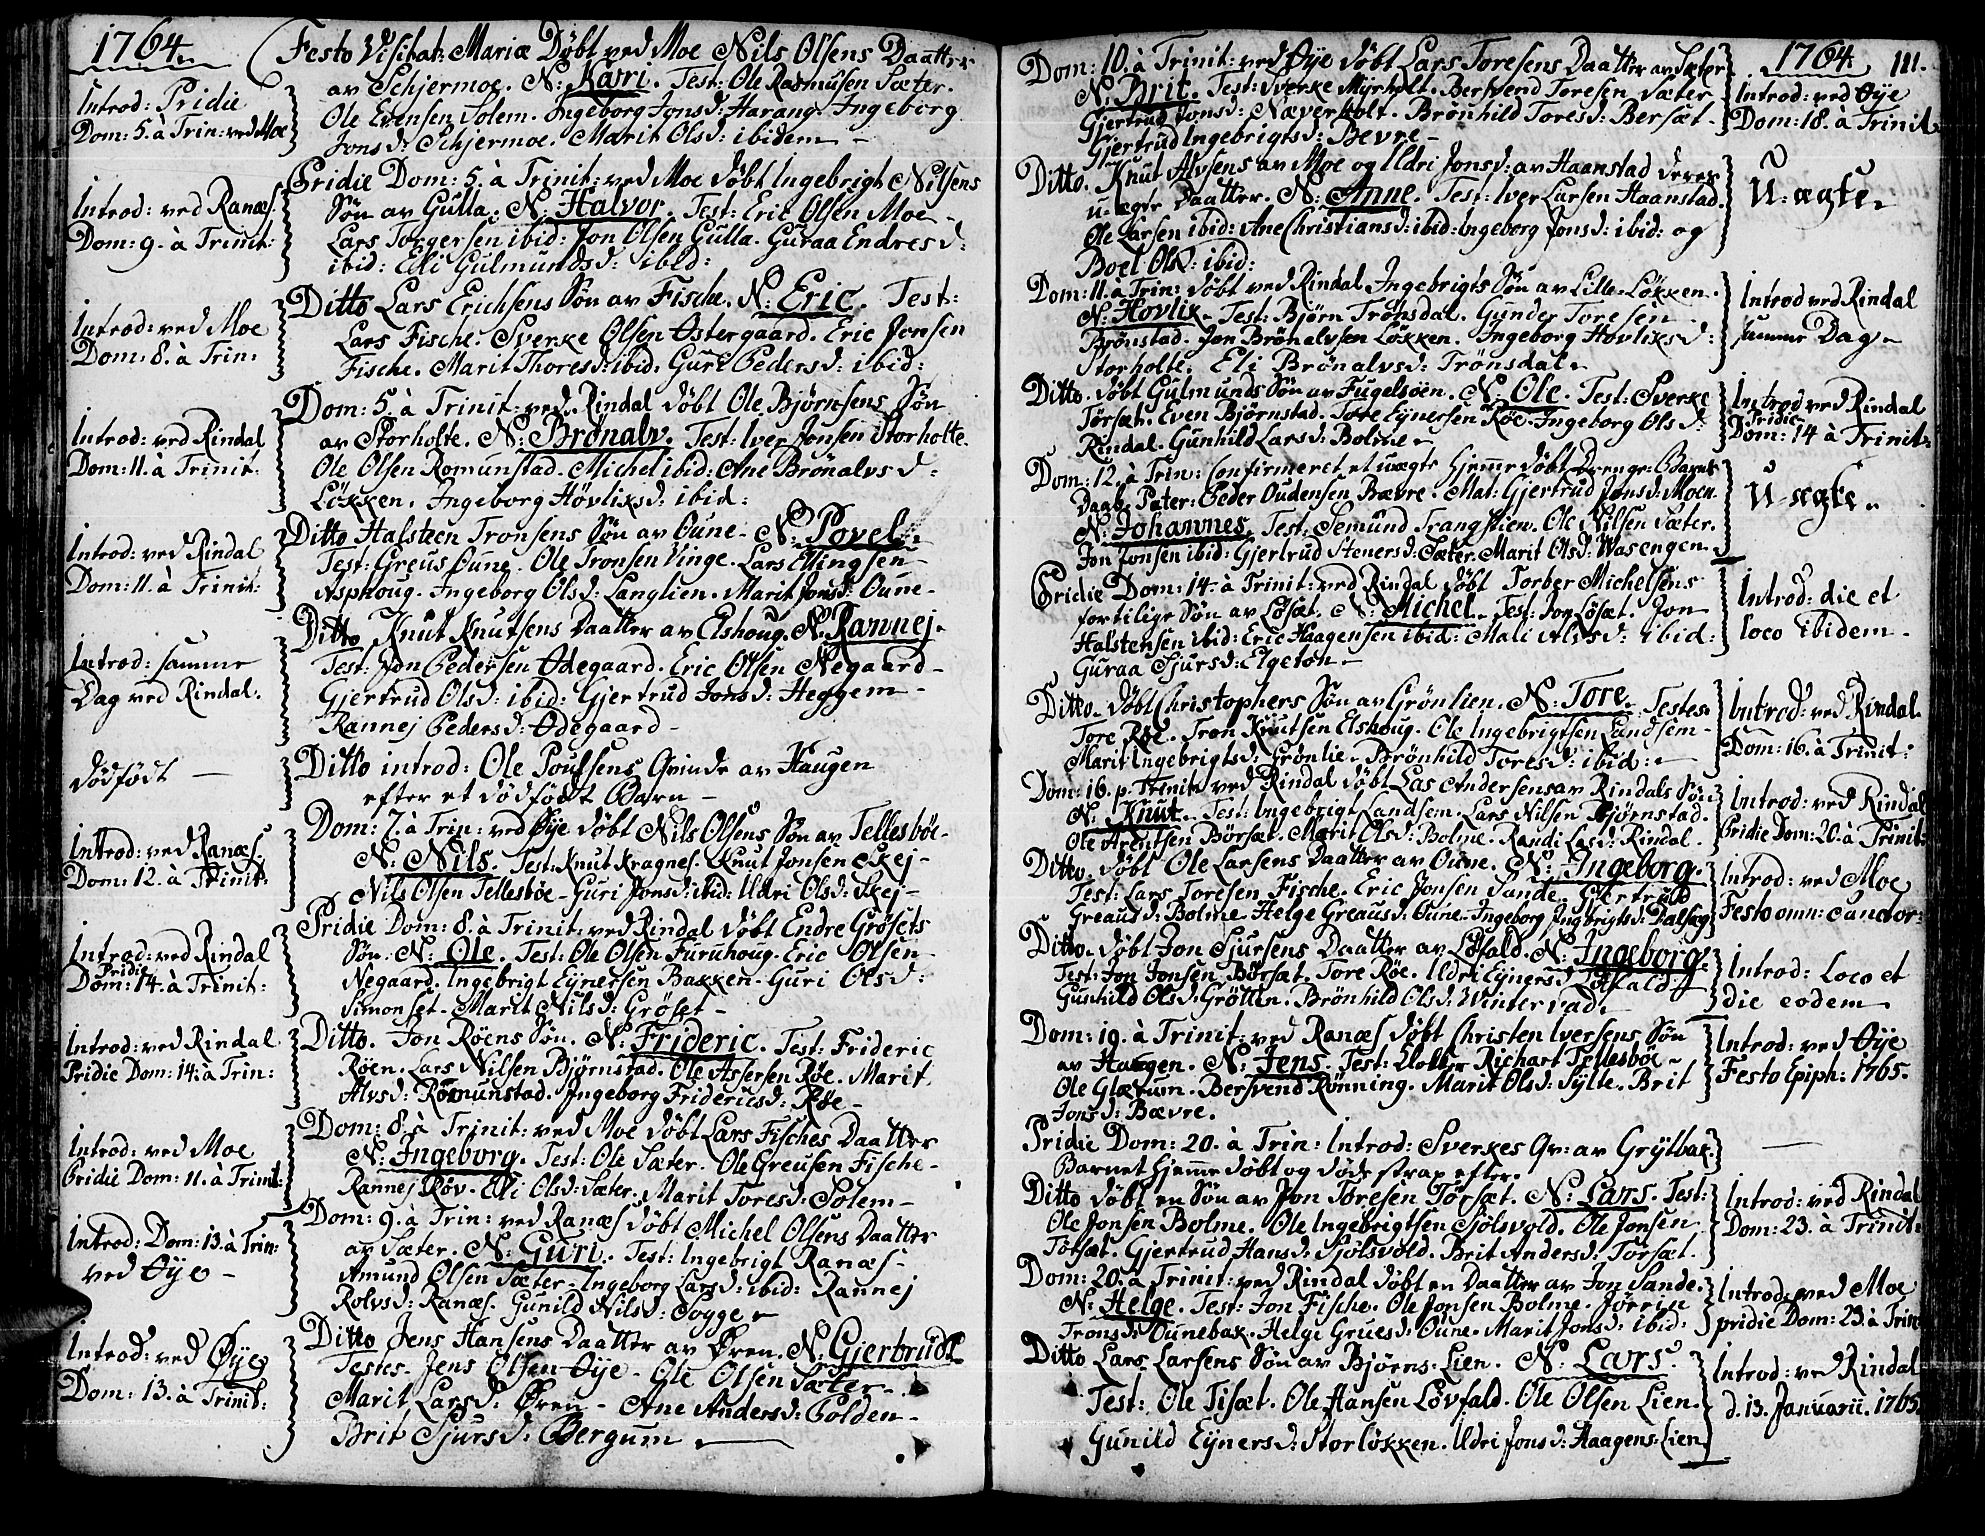 1764.
Introd: Pridie
Dom: 5. à Trin: ved Moe
Festo Visitat: Mariæ Døbt ved Moe Nils Olsens Daatter
av Schjermoe. N: Karri. Test: Ole Rasmusen Sæter.
Ole Evensen Solem. Ingeborg Jonsd: Harang. Ingeborg
Jonsd: Schjermoe. Marit Olsd: ibidem -
Introd: ved Ranæs.
Dom: 9. à Trinit:
Pridie Dom: 5. à Trinit: ved Moe døbt Ingebrigt Nilsens
Søn av Gulla. N: Halvor. Test: Eric Olsen Moe -
Lars Torgersen ibid: Jon Olsen Gulla. Guraa Endresd:
ibid: Eli Gulmundsd: ibid:
Introd: ved Moe
Dom: 8. à Trin:
Ditto Lars Erichsens Søn av Fische. N: Eric. Test:
Lars Fische. Sverke Olsen Østergaard. Eric Jonsen
Fische. Marit Thoresd: ibid: Guri Pedersd: ibid:
Introd: ved Rindal
Dom: 11. à Trinit:
Dom: 5. à Trinit: ved Rindal døbt Ole Bjørnsens Søn
av Storholte. N: Brønalv. Test: Iver Jonsen Storholte.
Ole Olsen Romunstad. Michel ibid: Ane Brønalvsd:
Løkken. Ingeborg Høvliksd: ibid:
Introd: ved Rindal
Dom: 11. à Trinit:
Ditto Halsteen Tronsens Søn av Oune. N: Povel.
Test: Greus Oune. Ole Tronsen Vinge. Lars Ellingsen
Asphoug. Ingeborg Olsd: Langlien. Marit Jonsd: Oune -
Introd: samme
Dag ved Rindal.
Ditto Knut Knutsens Daatter av Elshoug. N: Rannej.
Test: Jon Pedersen Ødegaard. Eric Olsen Negaard -
Gjertrud Olsd: ibid: Gjertrud Jonsd: Heggem -
Rannej Pedersd: Ødegaard -
dødfødt -
Ditto introd: Ole Poulsens Qvinde av Haugen
efter et dødfødt Barn -
Introd: ved Ranæs.
Dom: 12. à Trinit:
Dom: 7. à Trin: ved Øye døbt Nils Olsens Søn av Tellesbøe.
N: Nils. Test: Knut Kragnes. Knut Jonsen Skej -
Nils Olsen Tellesbøe - Guri Jonsd: ibid: Ildri Olsd: Skej -
Introd: ved Rindal
Pridie
Dom: 14. à Trinit:
Pridie Dom: 8. à Trinit: ved Rindal døbt Endre Grøsets
Søn. N: Ole. Test: Ole Olsen Furuhoug. Eric Olsen
Negaard. Ingebrigt Eynersen Bakken. Guri Olsd:
Simonset. Marit Nilsd: Grøset -
Introd: ved Rindal
Pridie Dom: 14. à Trin:
Ditto. Jon Røens Søn. N: Frideric. Test: Frideric
Røen. Lars Nilsen Bjørnstad. Ole Assersen Røe. Marit
Alvsd: Romunstad. Ingeborg Fridericsd: Røe -
Introd: ved Moe
Pridie Dom: 11. à Trinit:
Dom: 8. à Trinit: ved Moe døbt Lars Fisches Daatter
N: Ingeborg. Test: Ole Sæter. Ole Greusen Fische -
Rannej Røv. Eli Olsd: Sæter. Marit Toresd: Solem -
Introd: Dom: 13. à Trin:
ved Øye -
Dom: 9. à Trin: ved Ranæs døbt Michel Olsens Daatter
av Sæter. N: Guri. Test: Ingebrigt Ranæs -
Amund Olsen Sæter - Ingeborg Larsd: ibid: Rannej
Rolvsd: Ranæs. Gunild Nilsd: Sogge -
Introd: ved Øye
Dom: 13. à Trinit:
Ditto Jens Hansens Daatter av Øren. N: Gjertrud.
Testes - Jens Olsen Øye - Ole Olsen Sæter -
Marit Larsd: Øren - Ane Andersd: Polden -
Brit Sjursd: Bergum -
1764. 111.
Dom: 10. à Trinit: ved Øye døbt Lars Toresens Daatter av Sæter
N: Brit. Test: Sverke Myrholt. Bersvend Toresen Sæter
Gjertrud Jonsd: Næverholt. Brønhild Toresd: Bersæt -
Gjertrud Ingebrigtsd: Bevre -
Introd: ved Øye
Dom: 18. à Trinit:
Ditto. Knut Alvsens av Moe og Ildri Jonsd: av Haanstad deres
u-ægte Daatter. N: Anne. Test: Iver Larsen Haanstad.
Ole Larsen ibid: Ane Christiansd: ibid: Ingeborg Jonsd: ibid: og
Boel Olsd: ibid:
U-ægte.
Dom: 11. à Trin: døbt ved Rindal Ingebrigts Søn av Lille-Løkken.
N: Hovlik. Test: Bjørn Trønsdal. Gunder Toresen
Brønstad. Jon Brønalvsen Løkken. Ingeborg Hovliksd:
Storholte. Eli Brønalvsd: Trønsdal.
Introd ved Rindal
samme Dag -
Ditto. døbt Gulmunds Søn av Fugelsøen. N: Ole. Test: Sverke
Tørsæt. Even Bjørnstad. Tore Eynersen Røe. Ingeborg Olsd:
Rindal. Gunhild Larsd: Bolme -
Introd ved Rindal
Pridie
Dom: 14 à Trinit:
Dom: 12. à Trin: Confirmeret et uægte hjemme døbt Drenge-Barns
Daab. Pater: Peder Oudensen Bævre. Mat: Gjertrud Jonsd: Moen.
N: Johannes. Test: Semund Trangslien. Ole Nilsen Sæter.
Jon Jonsen ibid: Gjertrud Stenersd: Sæter. Marit Olsd: Wasengen -
U-ægte.
Pridie Dom: 14. à Trinit: ved Rindal døbt Torber Michelsens
fortilige Søn av Løsæt. N: Michel. Test: Jon Løsæt. Jon
Halstensen ibid: Eric Haagensen ibid: Mali Alvsd: ibid:
Guraa Sjursd: Elgeton -
Introd: die et
loco ibidem -
Ditto. døbt Christophers Søn av Grønlien. N: Tore. Testes.
Tore Røe. Tron Knutsen Elshoug. Ole Ingebrigtsen Landsem -
Marit Ingebrigtsd: Grønlie - Brønhild Toresd: ibid: -
Introd: ved Rindal
Dom: 16. à Trinit:
Dom: 16. p. Trinit: ved Rindal døbt Las Andersens av Rindals Søn
N: Knut. Test: Ingebrigt Landsem. Lars Nilsen Bjørnstad.
Ole Arentsen Børsæt. Marit Olsd: Bolme. Randi Lasd: Rindal.
Introd: ved Rindal
Pridie Dom: 20. à Trinit:
Ditto. døbt Ole Larsens Daatter av Oune. N: Ingeborg.
Test: Lars Toresen Fische. Eric Jonsen Sande. Gjertrud
Greausd: Bolme. Helge Greausd: Oune. Ingeborg Ingbrigtsd: Dalsæg
Introd: ved Moe
Festo omn: Sanctor:
Ditto. døbt Jon Sjursens Daatter av Løfald. N: Ingeborg.
Test: Jon Jonsen Børsæt. Tore Røe. Ildri Eynersd: Løfald
Gunhild Olsd: Grøtten. Brønhild Olsd: Vintervad.
Introd: Loco et
die eodem -
Dom: 19. à Trinit: ved Ranæs døbt Christen Iversens Søn
av Haugen. N: Jens. Test: Klokker Richart Tellesbøe -
Ole Glærum. Bersvend Rønning. Marit Olsd: Sylte. Brit
Jonsd: Bævre.
Introd: ved Øye
Festo Epiph: 1765.
Pridie Dom: 20. à Trin: Introd: Sverkes Qv: av Grytbak.
Barnet hjemme døbt og døde strax efter.
Ditto døbt en Søn av Jon Toresen Tørsæt. N: Lars. Test:
Ole Jonsen Bolme. Ole Ingebrigtsen Sjølsvold. Ole Jonsen
Tørsæt. Gjertrud Hansd: Sjølsvold. Brit Andersd: Torsæt.
Introd: ved Rindal
Dom: 23. à Trinit:
Dom: 20. à Trinit: ved Rindal døbt en Daatter av Jon Sande.
N: Helge. Test: Jon Fische. Ole Jonsen Bolme. Jørrin
Tronsd: Ounebak. Helge Gruesd: Oune. Marit Jonsd: ibid:
Introd: ved Moe
pridie Dom: 23. à Trin:
Ditto Lars Larsens Søn av Bjørns-Lien. N: Lars.
Test: Ole Tisæt. Ole Hansen Løvfald. Ole Olsen Lien.
Gunild Eynersd: Storløkken. Ildri Jonsd: Haagens-Lien
Introd: ved Rindal
d. 13. Januarii. 1765.